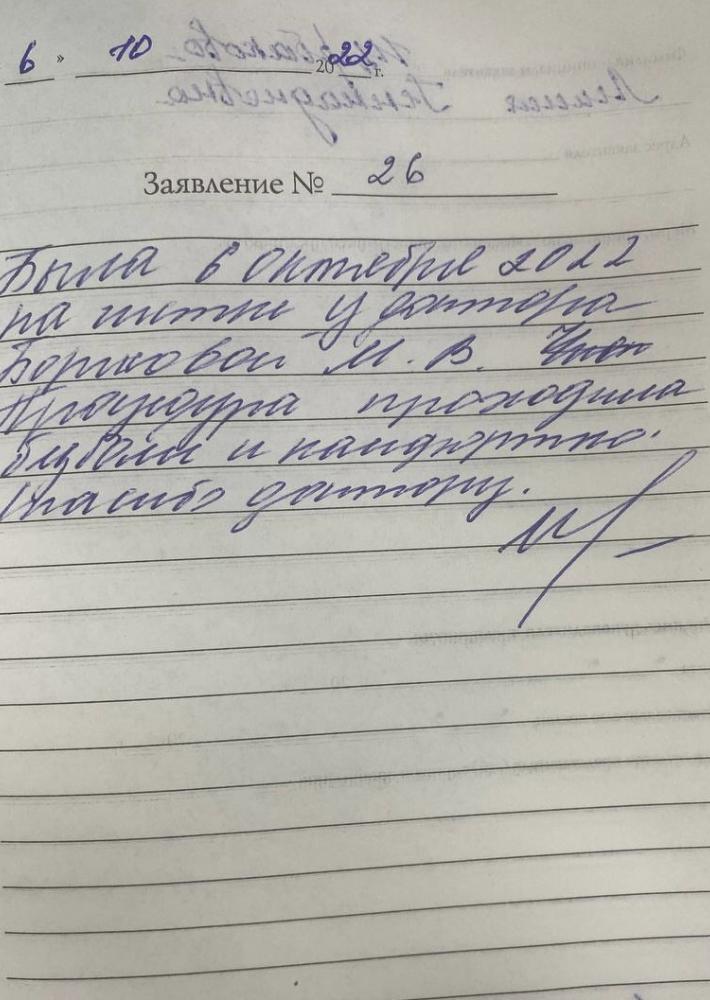 6 » 10 2022 г.
Заявление № 26
Была 6 октября 2022
на чистке у доктора
Боршковой М. В.
Процедура проходила
безболи и камфортно.
Спасибо доктору.